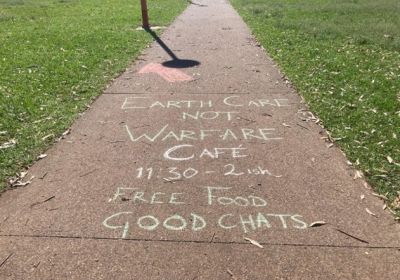 EARTH CARE
NOT
WARFARE
CAFÉ
11:30-2ish
FREE FOOD
GOOD CHATS